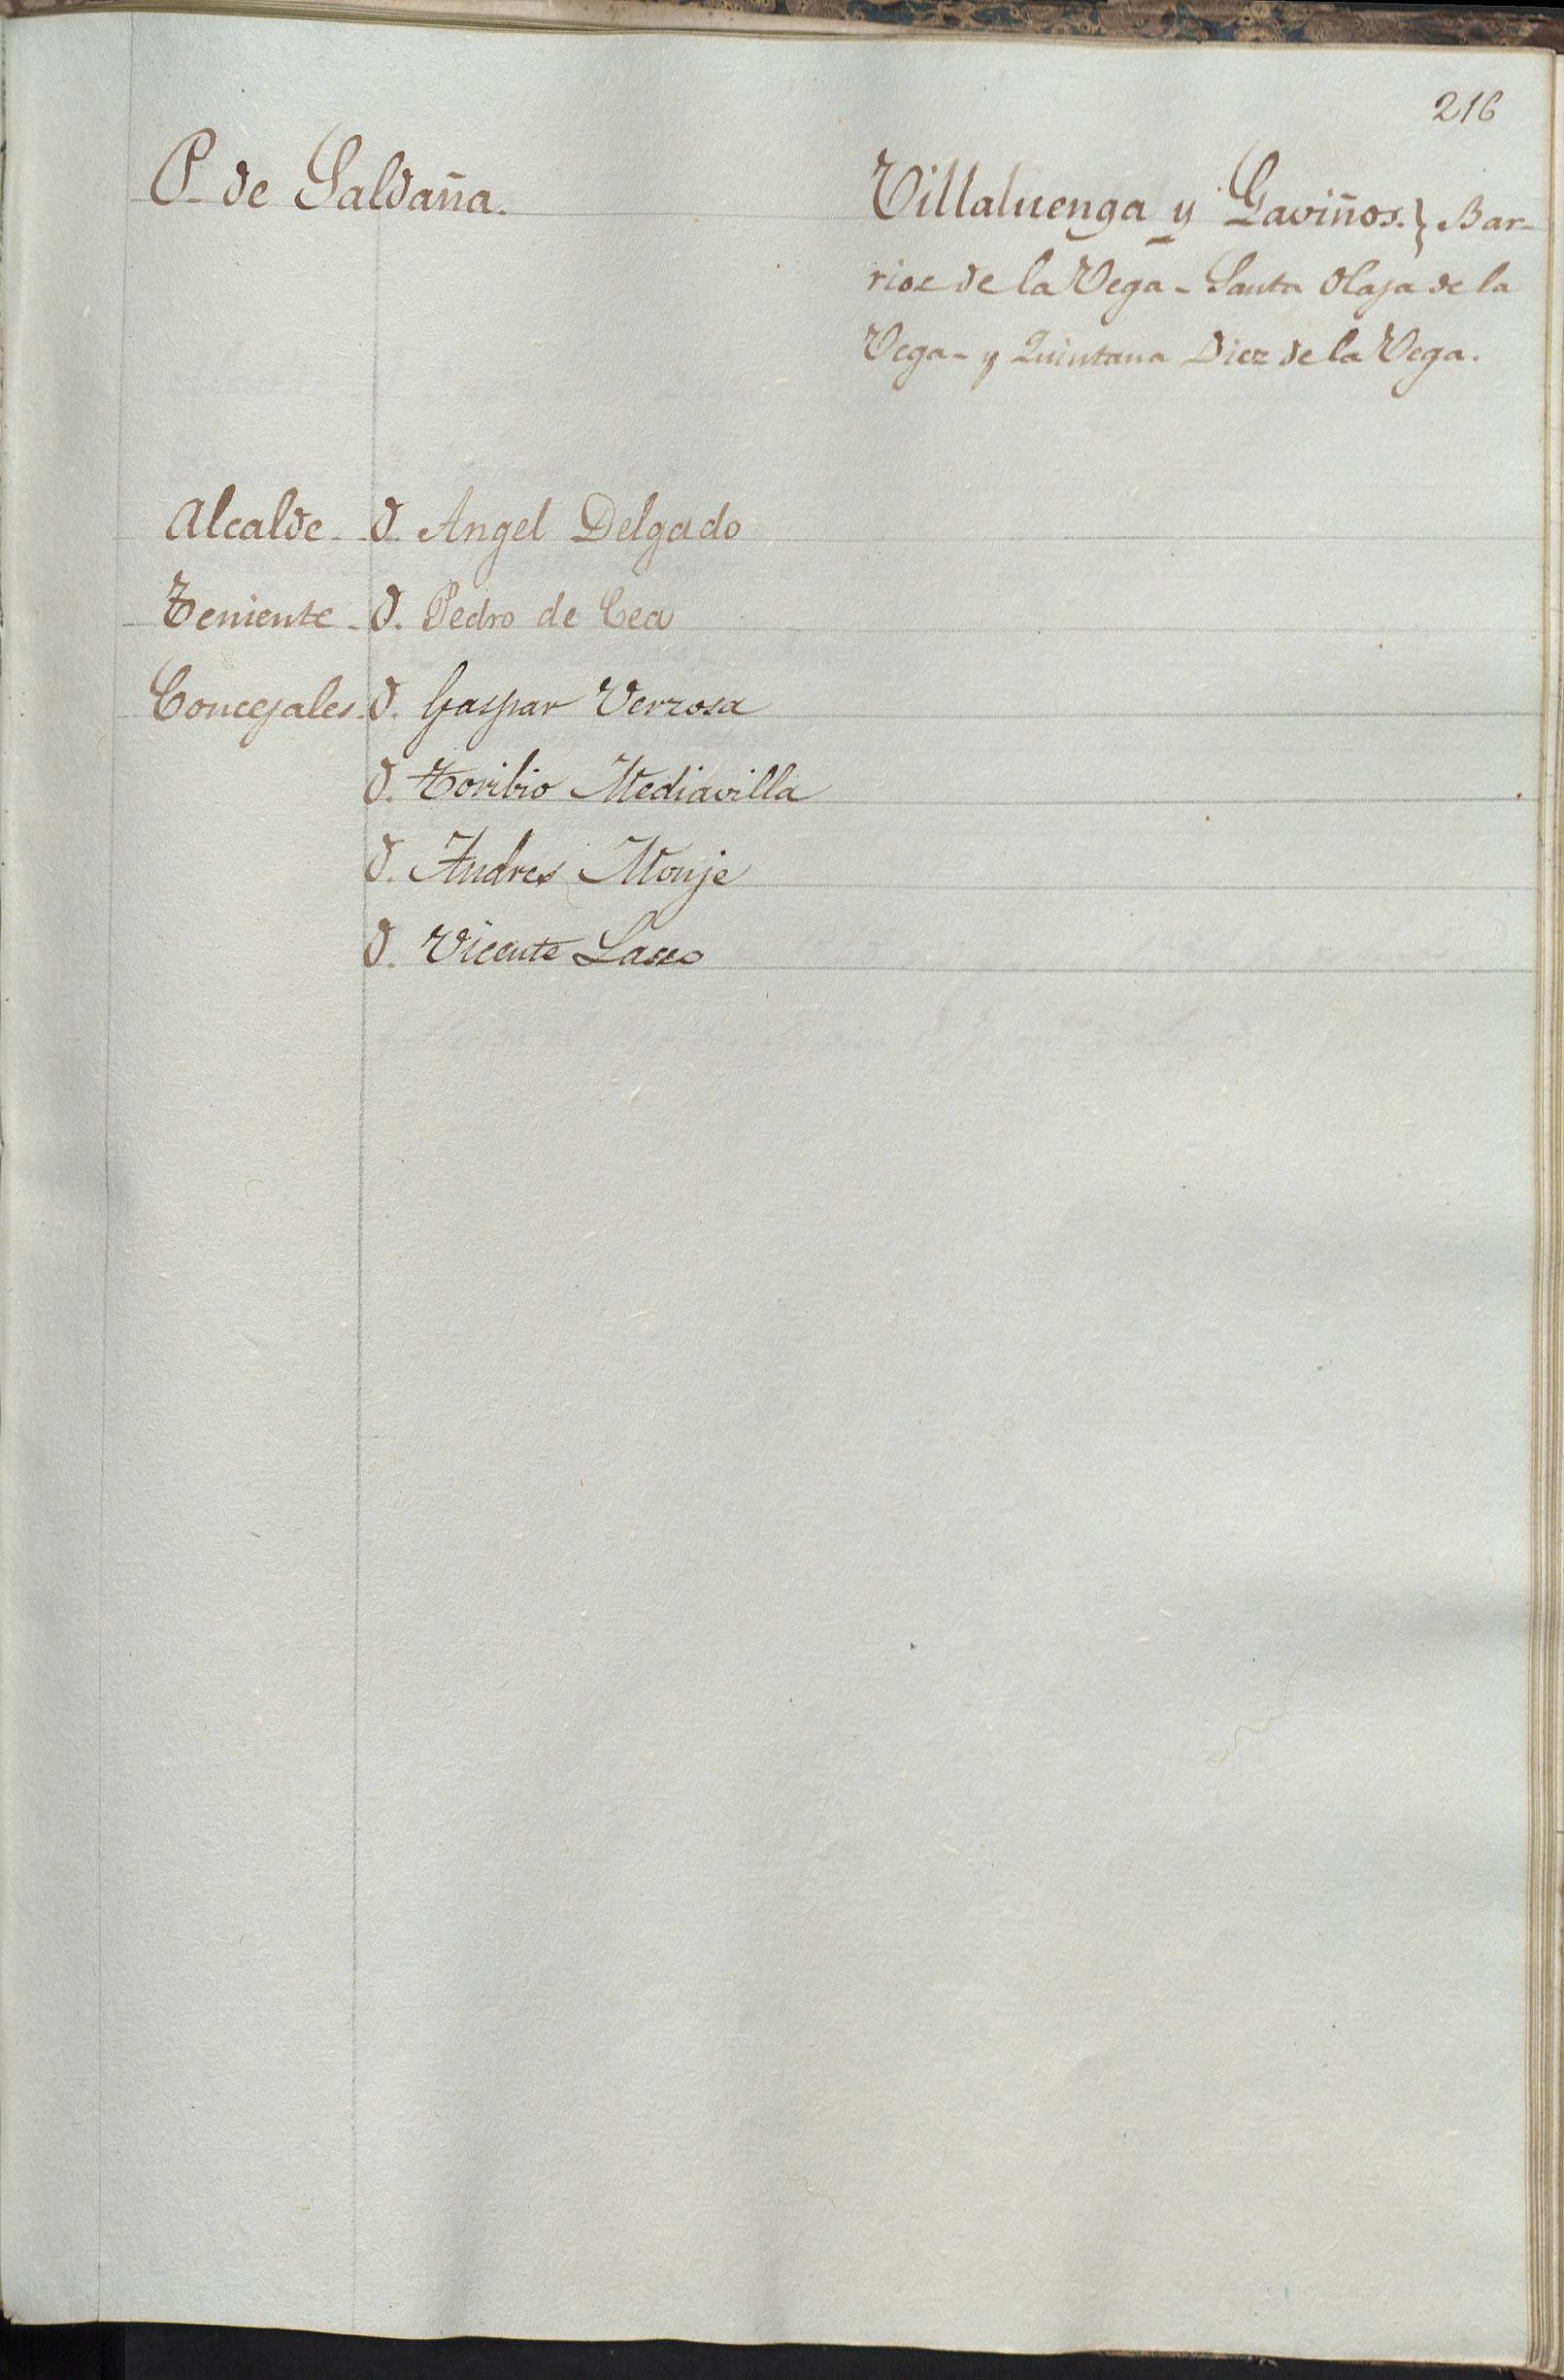 216
P. de Saldaña.
Villaluenga y Gaviños.} Bar-
rios de la Vega - Santa Olaja de la
Vega - y Quintana Diez de la Vega.
Alcalde - D. Angel Delgado
Teniente - D. Pedro de Cea
Concejales. D. Gaspar Verzosa
D. Toribio Mediavilla
D. Andres Monje
D. Vicente Laso